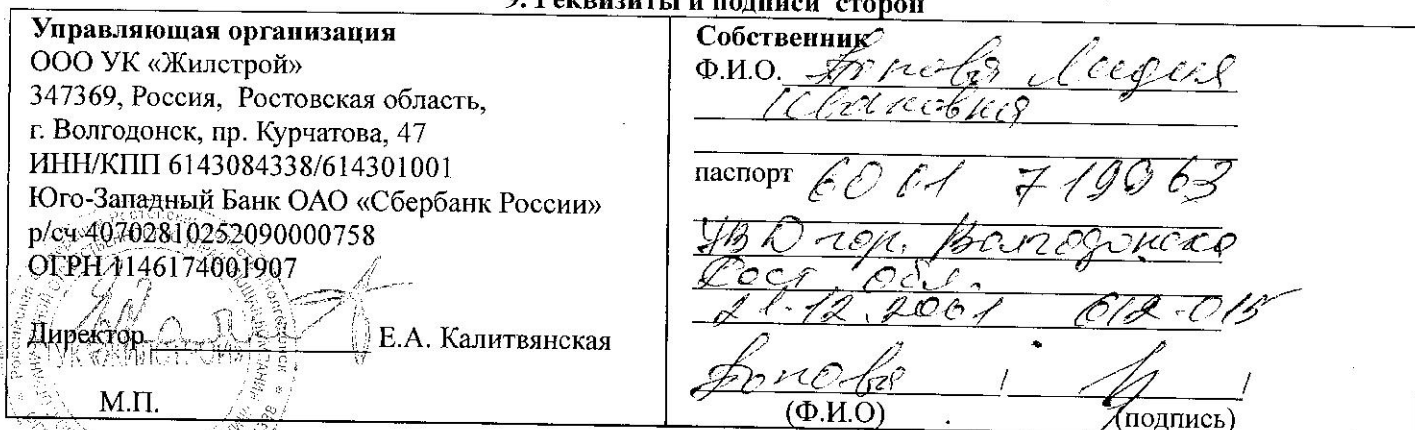 9. Реквизиты и подписи сторон
Управляющая организация
ООО УК «Жилстрой»
347369, Россия, Ростовская область,
г. Волгодонск, пр. Курчатова, 47
ИНН/КПП 6143084338/614301001
Юго-Западный Банк ОАО «Сбербанк России»
р/сч 40702810252090000758
ОГРН 1146174001907
Директор Е.А. Калитвянская
М.П.
Собственник
Ф.И.О. Лидия
Ивановна
паспорт 60 01 719963
УВД гор. Волгодонска
Рост обл.
21.12.2001 612-015
(Ф.И.О) (подпись)